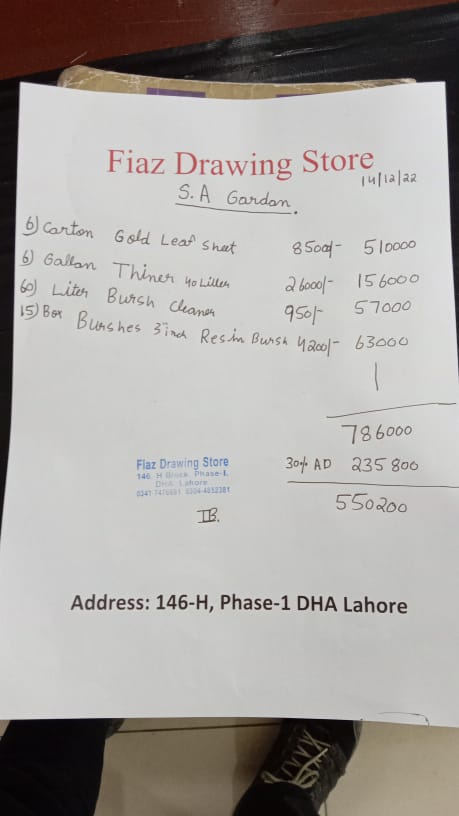 Fiaz Drawing Store
14/12/22
S.A Gardan.
6) Carton Gold Leaf sheet 85000/- 510000
6) Gallan Thiner 40 Litter 26000/- 156000
60) Liter Bursh Cleaner 950/- 57000
15) Box Burshes 3 inch Resin Bursh 4200/- 63000
786000
30% AD 235800
550200
Fiaz Drawing Store
146 H Block Phase-1,
DHA Lahore
IB.
Address: 146-H, Phase-1 DHA Lahore